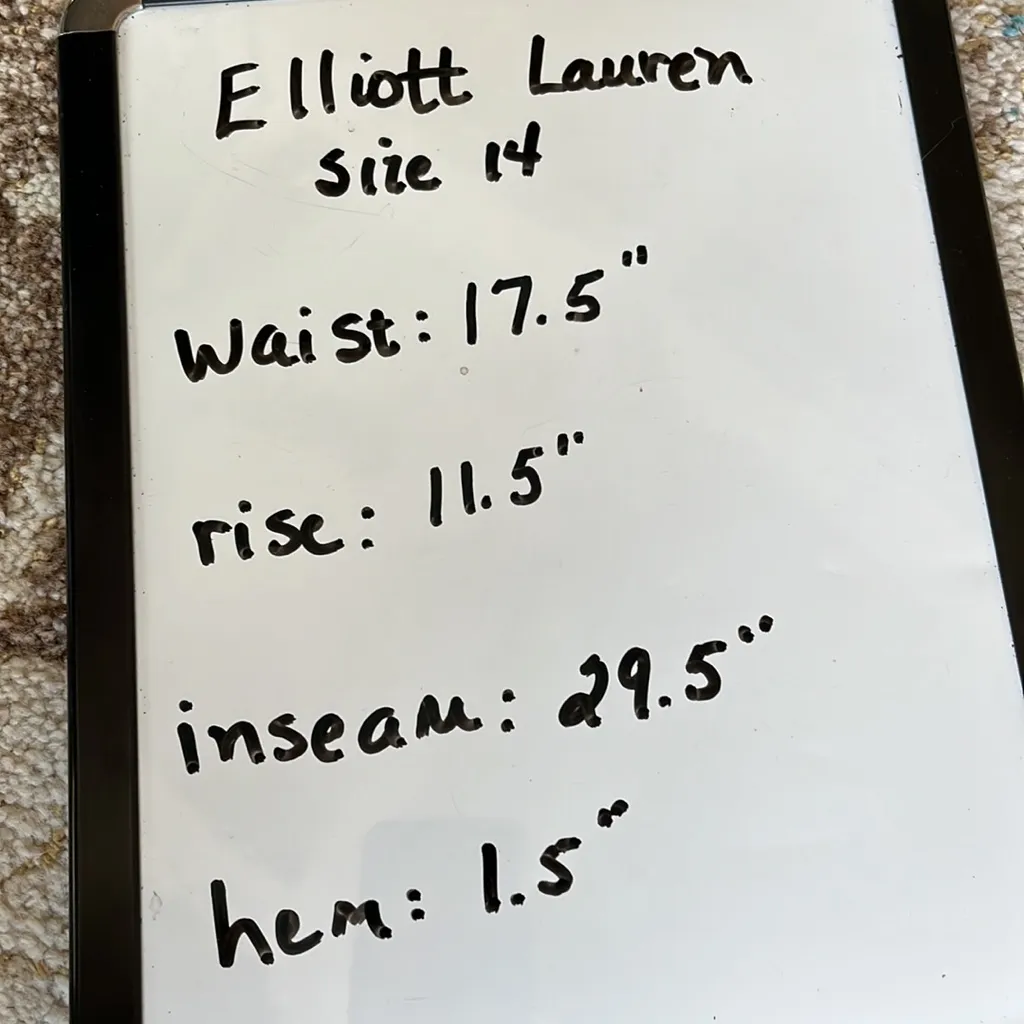 Elliott Lauren
size 14
Waist: 17.5"
rise: 11.5"
inseam: 29.5"
hem: 1.5"